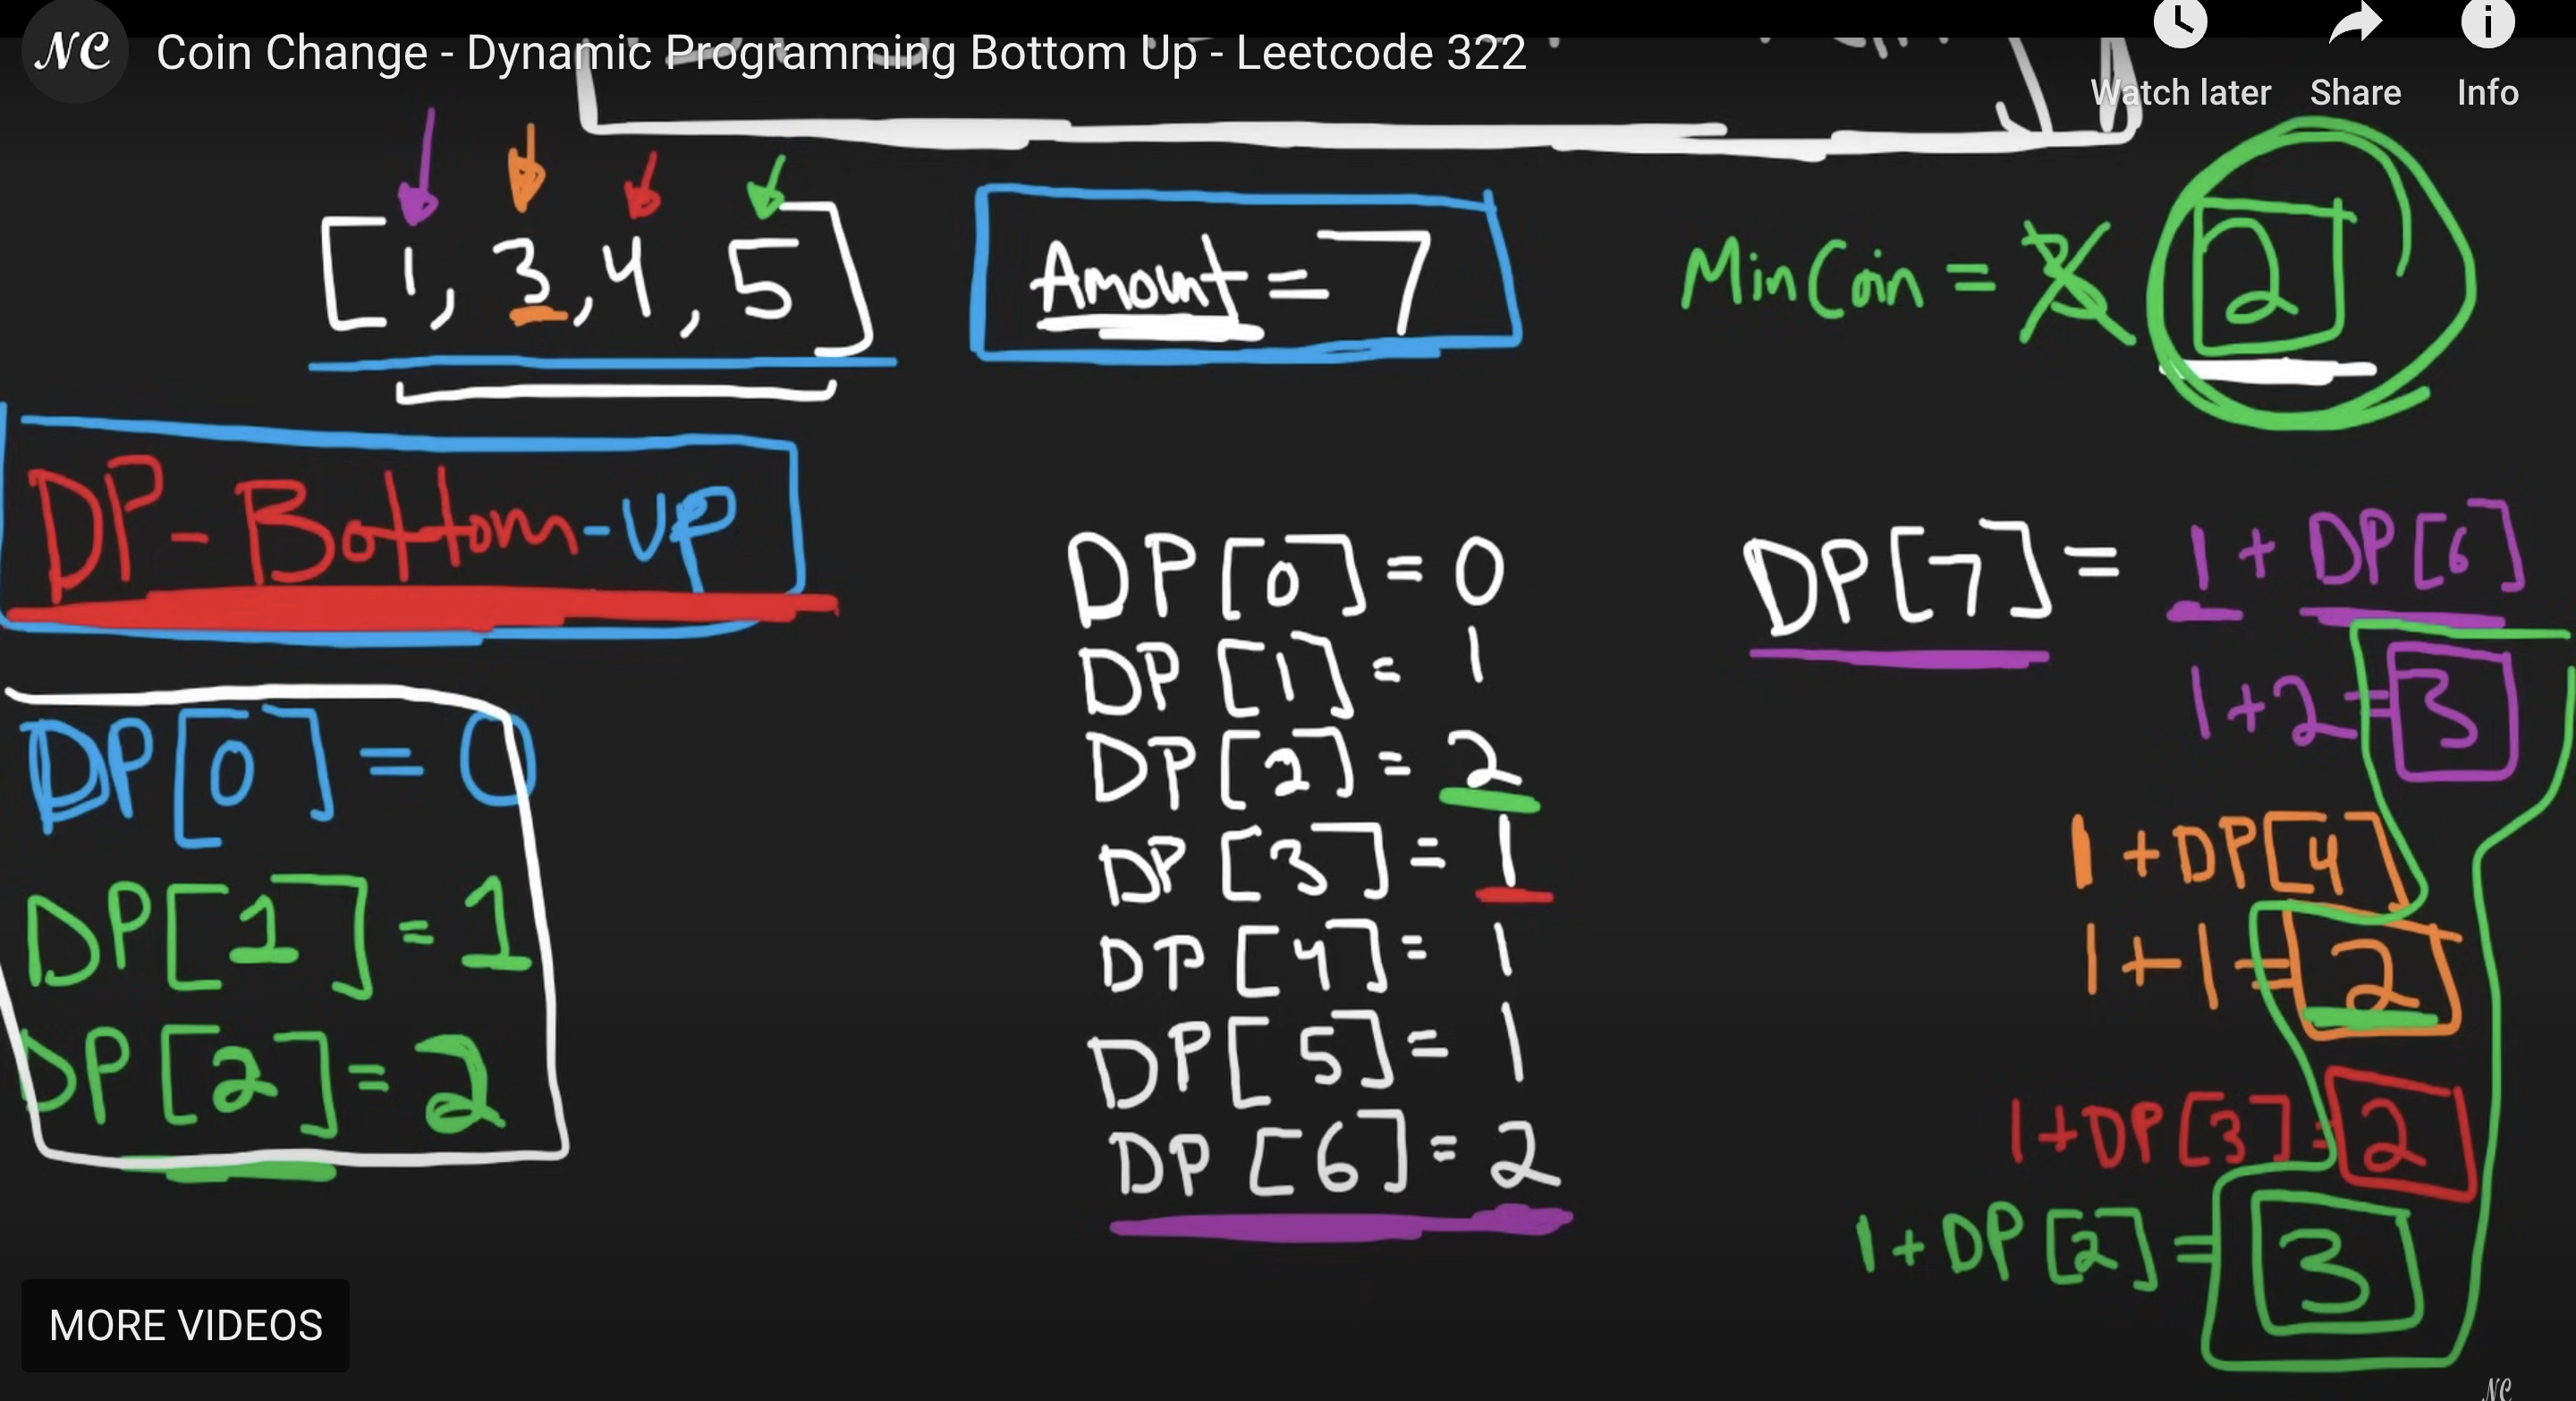 NC Coin Change - Dynamic Programming Bottom Up - Leetcode 322
Watch later Share Info
[1, 3, 4, 5]
Amount = 7
MinCoin = 3 2
DP-Bottom-UP
DP[0] = 0
DP[1] = 1
DP[2] = 2
DP[0] = 0
DP[1] = 1
DP[2] = 2
DP[3] = 1
DP[4] = 1
DP[5] = 1
DP[6] = 2
DP[7] = 1 + DP[6]
1+2=3
1+DP[4]
1+1=2
1+DP[3]=2
1+DP[2]=3
MORE VIDEOS
NC